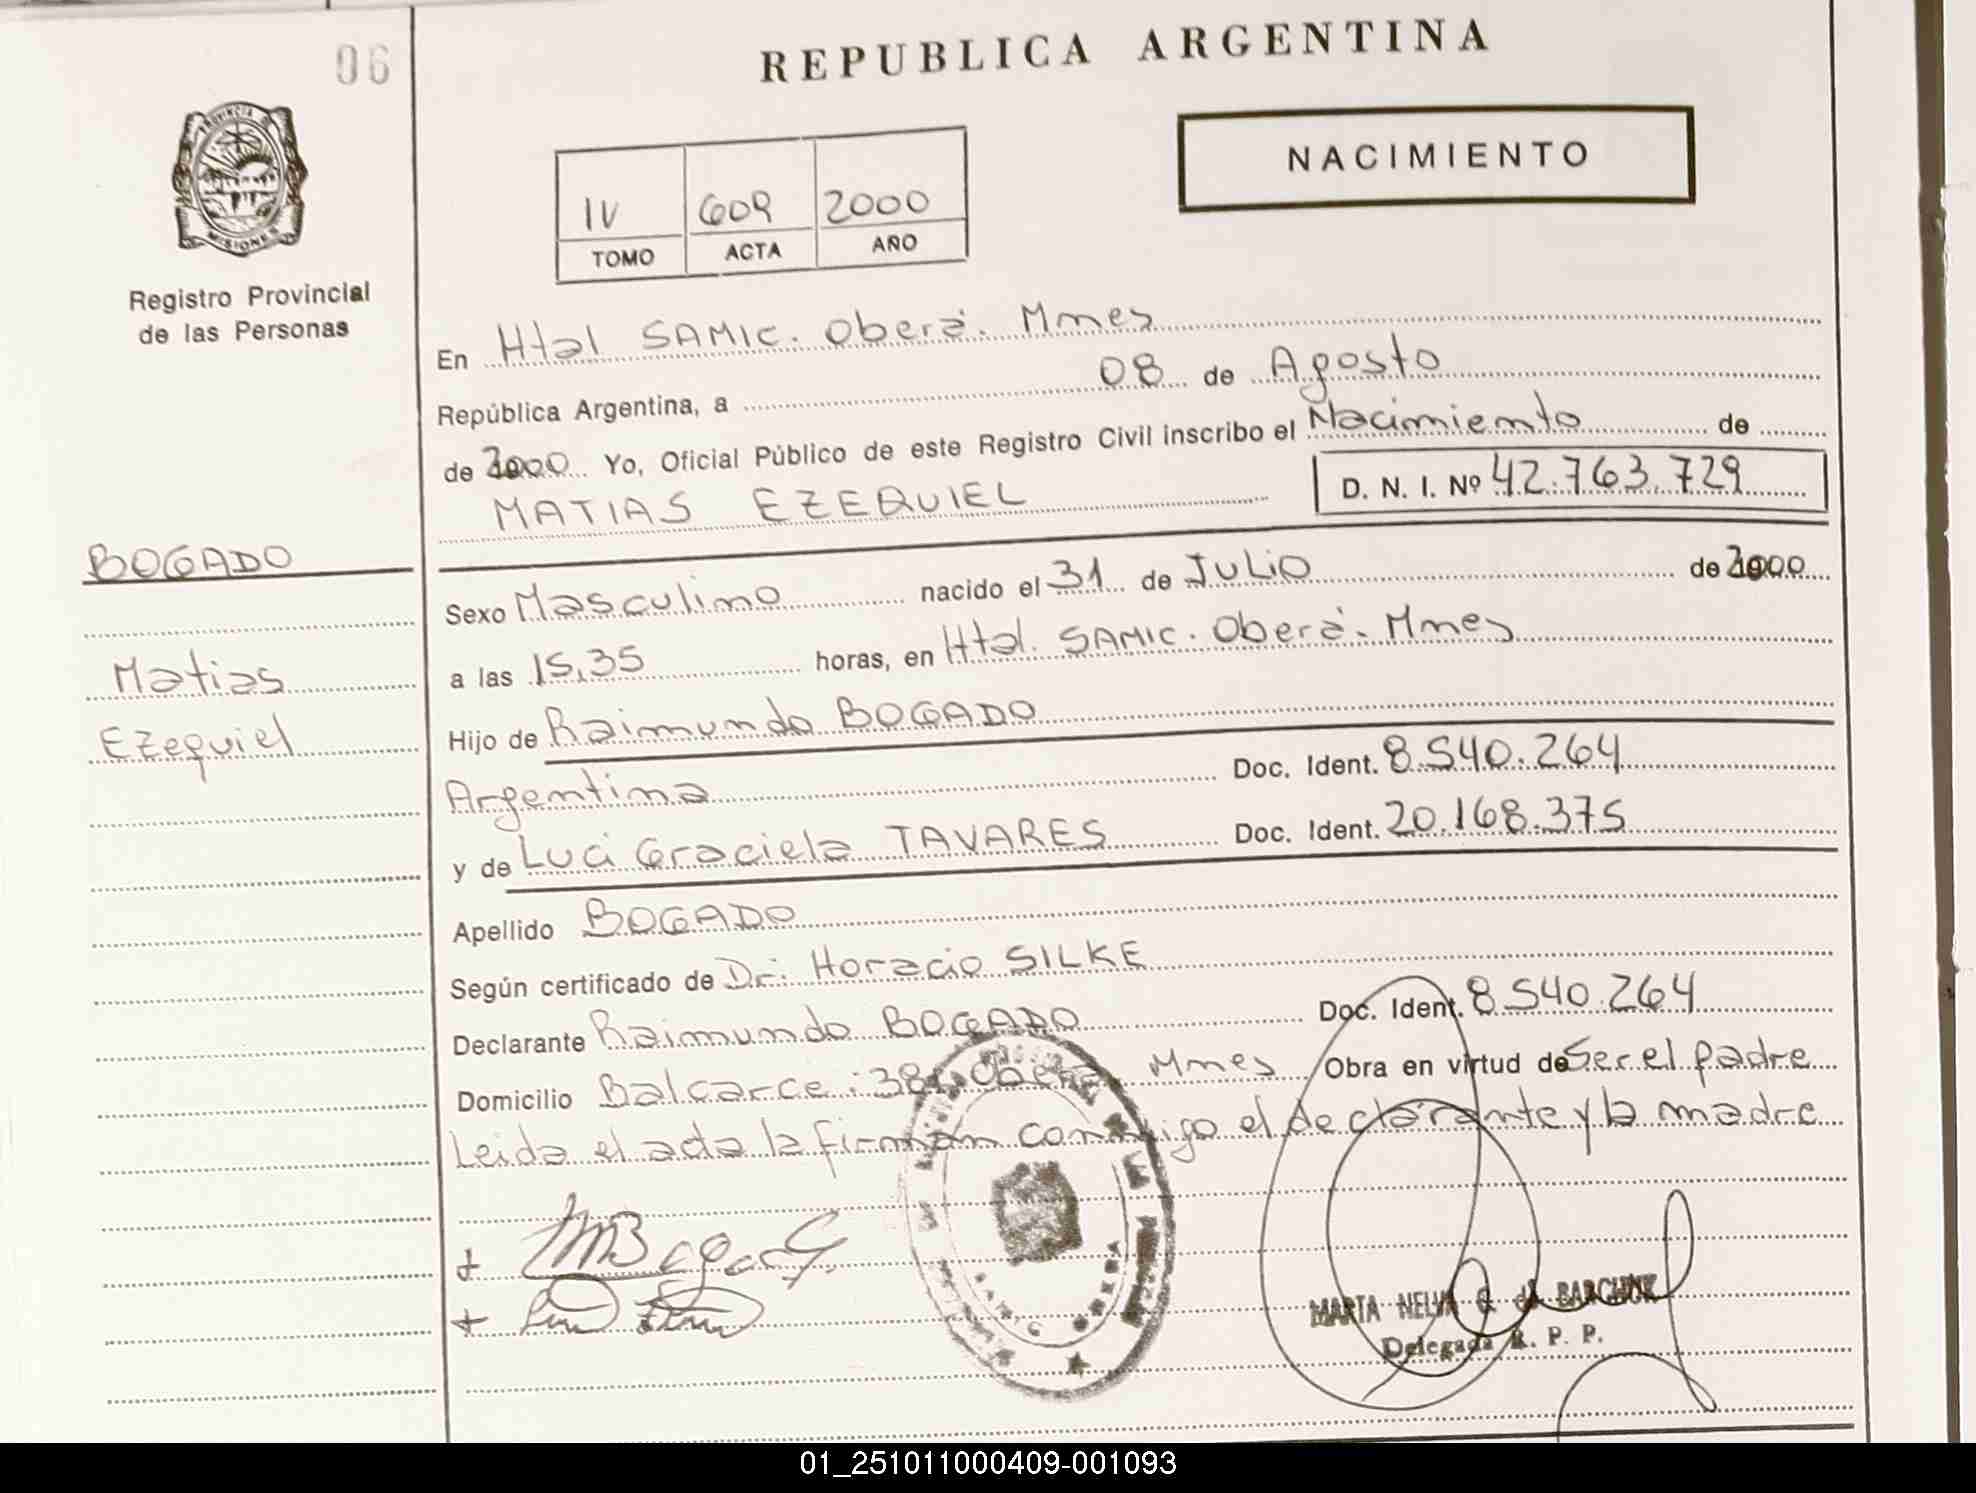 06
REPUBLICA ARGENTINA
PROVINCIA DE
MISIONES
Registro Provincial
de las Personas
NACIMIENTO
IV 609 2000
TOMO ACTA AÑO
En Htal SAMIC. Oberá. Mnes
República Argentina, a 08 de Agosto
de 2000 Yo, Oficial Público de este Registro Civil inscribo el Nacimiento de
MATIAS EZEQUIEL D. N. I. Nº 42.763.729
BOGADO
Matias
Ezequiel
Sexo Masculino nacido el 31 de JULIO de 2000
a las 15,35 horas, en Htal. SAMIC. Oberá. Mnes
Hijo de Raimundo BOGADO
Argentina Doc. Ident. 8.540.264
y de Luci Graciela TAVARES Doc. Ident. 20.168.375
Apellido BOGADO
Según certificado de Dr: Horacio SILKE
Declarante Raimundo BOGADO Doc. Ident. 8.540.264
Domicilio Balcarce: Oberá Mnes Obra en virtud de Ser el padre
Leida el acta la firman conmigo el declarante y la madre
MARTA NELVA G. de BARCHUK
Delegada R. P. P.
01_251011000409-001093